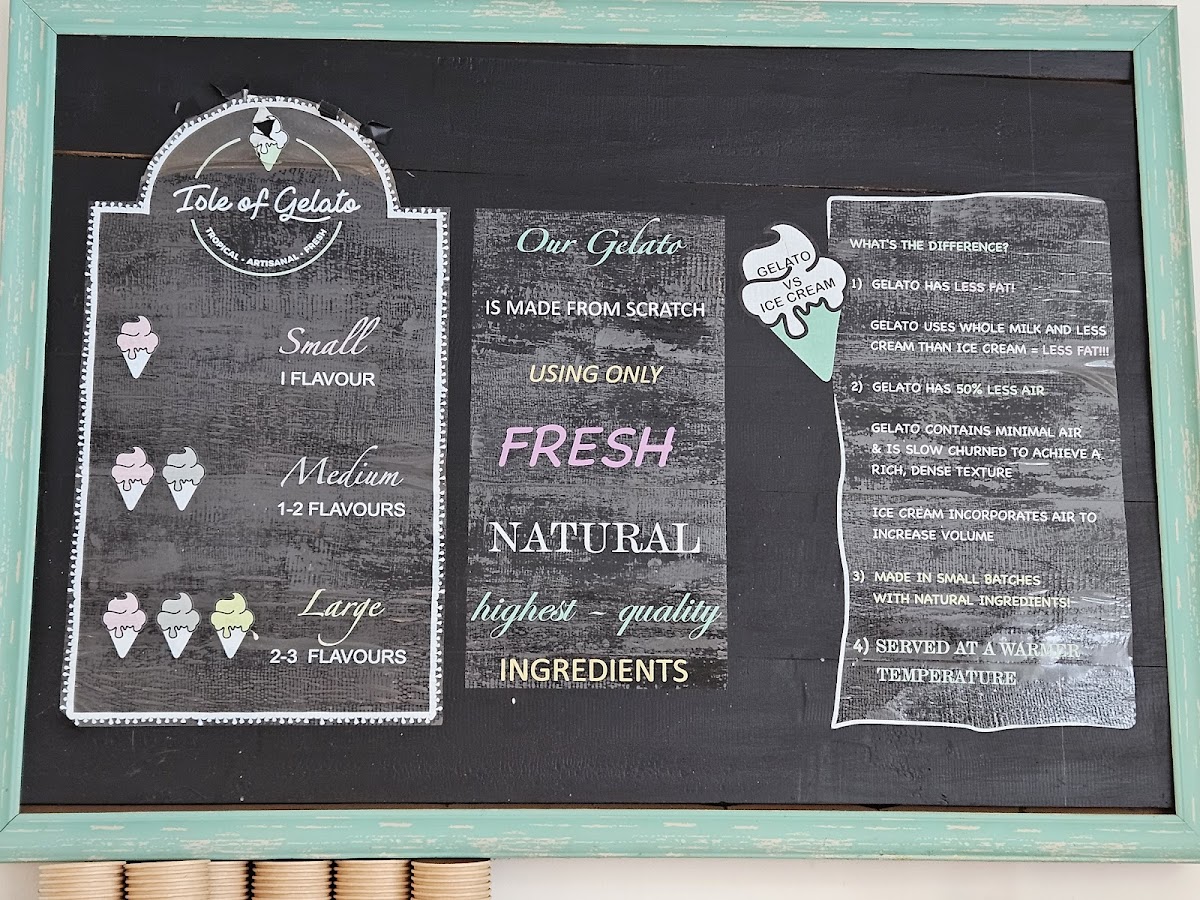 Isle of Gelato
TROPICAL • ARTISANAL • FRESH
Small
1 FLAVOUR
Medium
1-2 FLAVOURS
Large
2-3 FLAVOURS
Our Gelato
IS MADE FROM SCRATCH
USING ONLY
FRESH
NATURAL
highest - quality
INGREDIENTS
GELATO
VS
ICE CREAM
WHAT'S THE DIFFERENCE?
1) GELATO HAS LESS FAT!
GELATO USES WHOLE MILK AND LESS
CREAM THAN ICE CREAM = LESS FAT!!!
2) GELATO HAS 50% LESS AIR
GELATO CONTAINS MINIMAL AIR
& IS SLOW CHURNED TO ACHIEVE A
RICH, DENSE TEXTURE
ICE CREAM INCORPORATES AIR TO
INCREASE VOLUME
3) MADE IN SMALL BATCHES
WITH NATURAL INGREDIENTS!
4) SERVED AT A WARMER
TEMPERATURE